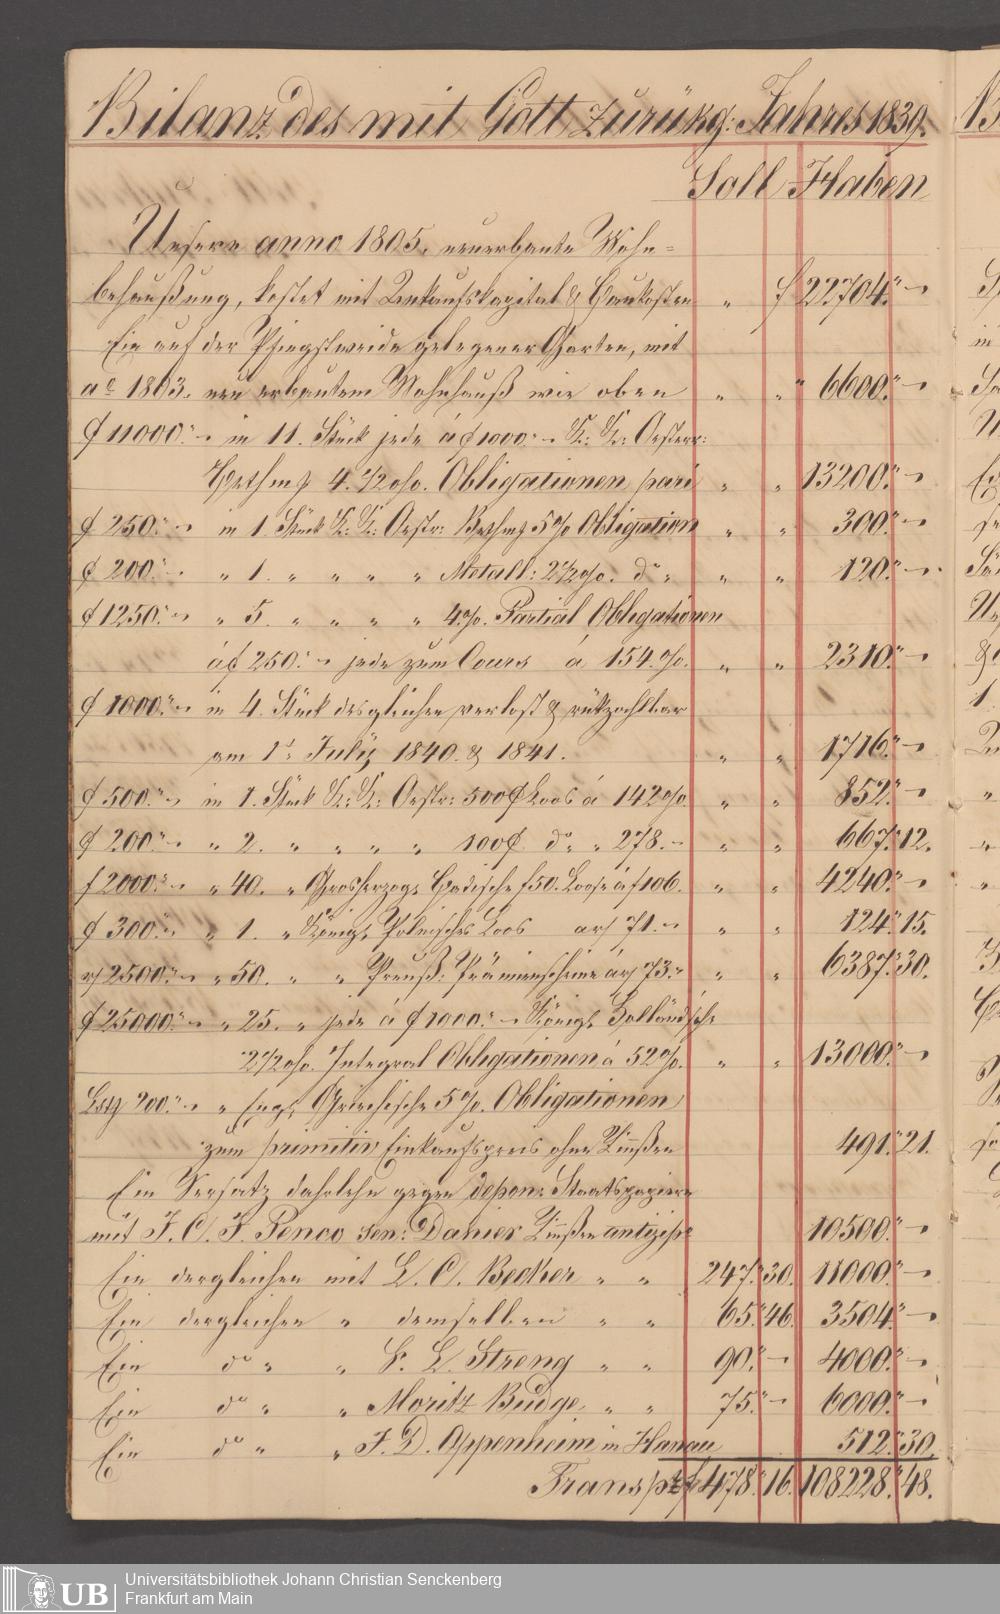 Bilanz des mit Gott zurükg: Jahres 1839.
Soll Haben
Unsere anno 1805. neuerbaute Wohn=
behaußung, kostet mit Ankaufskapital & Baukosten „ f 22704.„ –
Ein auf der Pfingstweide gelegener Garten, mit
ao 1803. neu erbautem Wohnhauß wie oben „ „ „ 6600.„ –
f 11000.„ – in 11. Stück jede á f 1000.„ – K: K: Oesterr:
Bethm 4. 1/2 o/o. Obligationen pari „ „ 13200.„ –
f 250.„ – in 1. Stück K: K: Oestr: Bethm 5 % Obligation „ „ 300.„ –
f 200.„ – „ 1. „ „ „ „ Metall: 2 1/2 o/o. do „ „ „ 120.„ –
f 1250.„ – „ 5. „ „ „ „ 4 %. Partial Obligationen
á f 250.„ – jede zum Cours á 154. o/o. „ „ 2310.„ –
f 1000.„ – in 4. Stück desgleichen verlost & rükzahlbar
am 1t July 1840. & 1841. „ „ 1716.„ –
f 500.„ – in 1. Stück K: K: Oestr: 500 f Loos á 142 o/o „ „ 852.„ –
f 200.„ – „ 2. „ „ „ „ 100 f. do „ „ 278. – „ „ 667.„ 12.
f 2000.„ – „ 40. „ Grosherzogl. Badische f 50. Loose á f 106. „ „ 4240.„ –
f 300.„ – „ 1. „ Königl. Polnisches Loos a 71. – „ „ 124.„ 15.
2500.„ – „ 50. „ „ Preuß: Prämienscheine á 73.„ „ „ 6387.„ 30.
f 25000.„ – „ 25. „ jede á f 1000.„ – Königl. Holländische
2 1/2 o/o. Integral Obligationen á 52 o/o. „ „ 13000.„ –
Lstg 200.„ – „ Engl. Griechische 5 %. Obligationen
zum primitiv Einkaufspreis ohne Zinßen 491.„ 21.
Ein Versatz dahrlehn gegen depon: Staatspapiere
mit J. C. J. Penco sen: Danier Zinßen 10500.„ –
Ein dergleichen mit L. C. Becker „ „ 247.„ 30. 11000.„ –
Ein dergleichen „ demselben „ „ 65.„ 46. 3504.„ –
Ein do „ „ L. Streng „ „ 90.„ – 4000.„ –
Ein do „ „ Moritz Budge „ „ 75.„ – 6000.„ –
Ein do „ „ J. D. Oppenheim in Hanau 512.„ 30.
Transpt f 478.„ 16. 108228.„ 48.
UB
Universitätsbibliothek Johann Christian Senckenberg
Frankfurt am Main